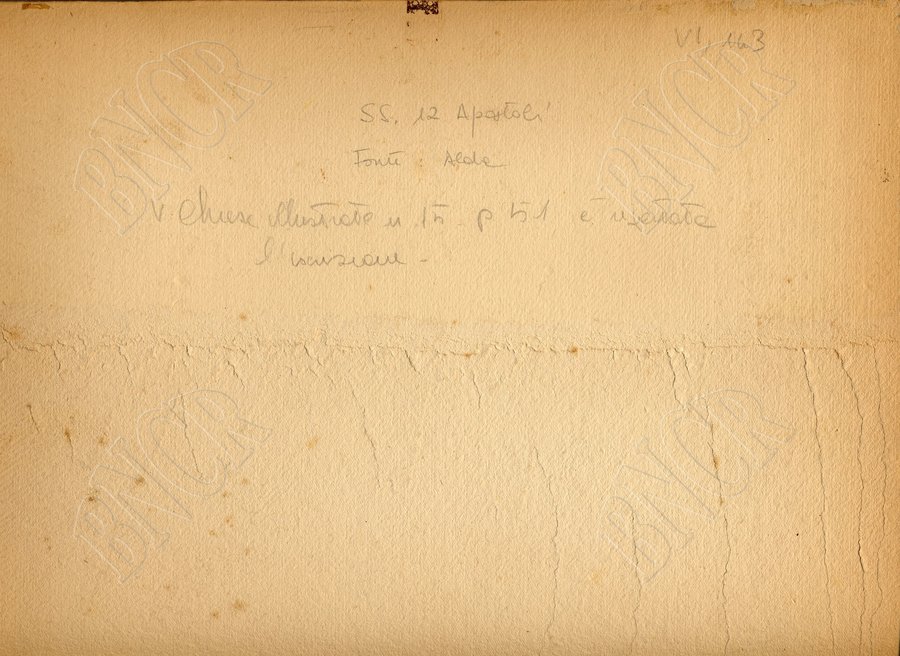 VI,
SS. 12 Apostoli
Fonte: Alda
V Chiese Illustrate n p 51 è riportata
l'iscrizione -
BNCR
BNCR
BNCR
BNCR